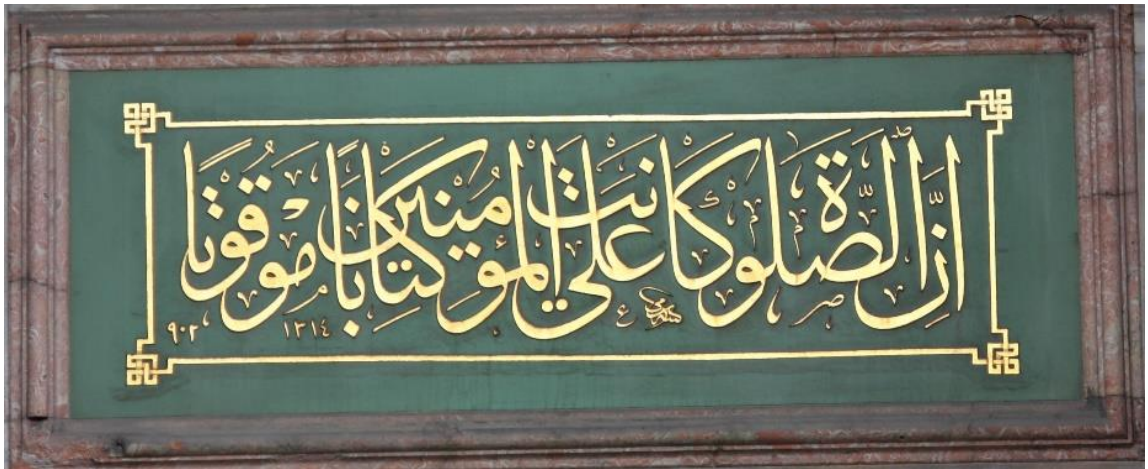 اِنَّ الصَّلٰوةَ كَانَتْ عَلَى الْمُؤْمِنِينَ كِتَابًا مَوْقُوتًا
١٣١٤